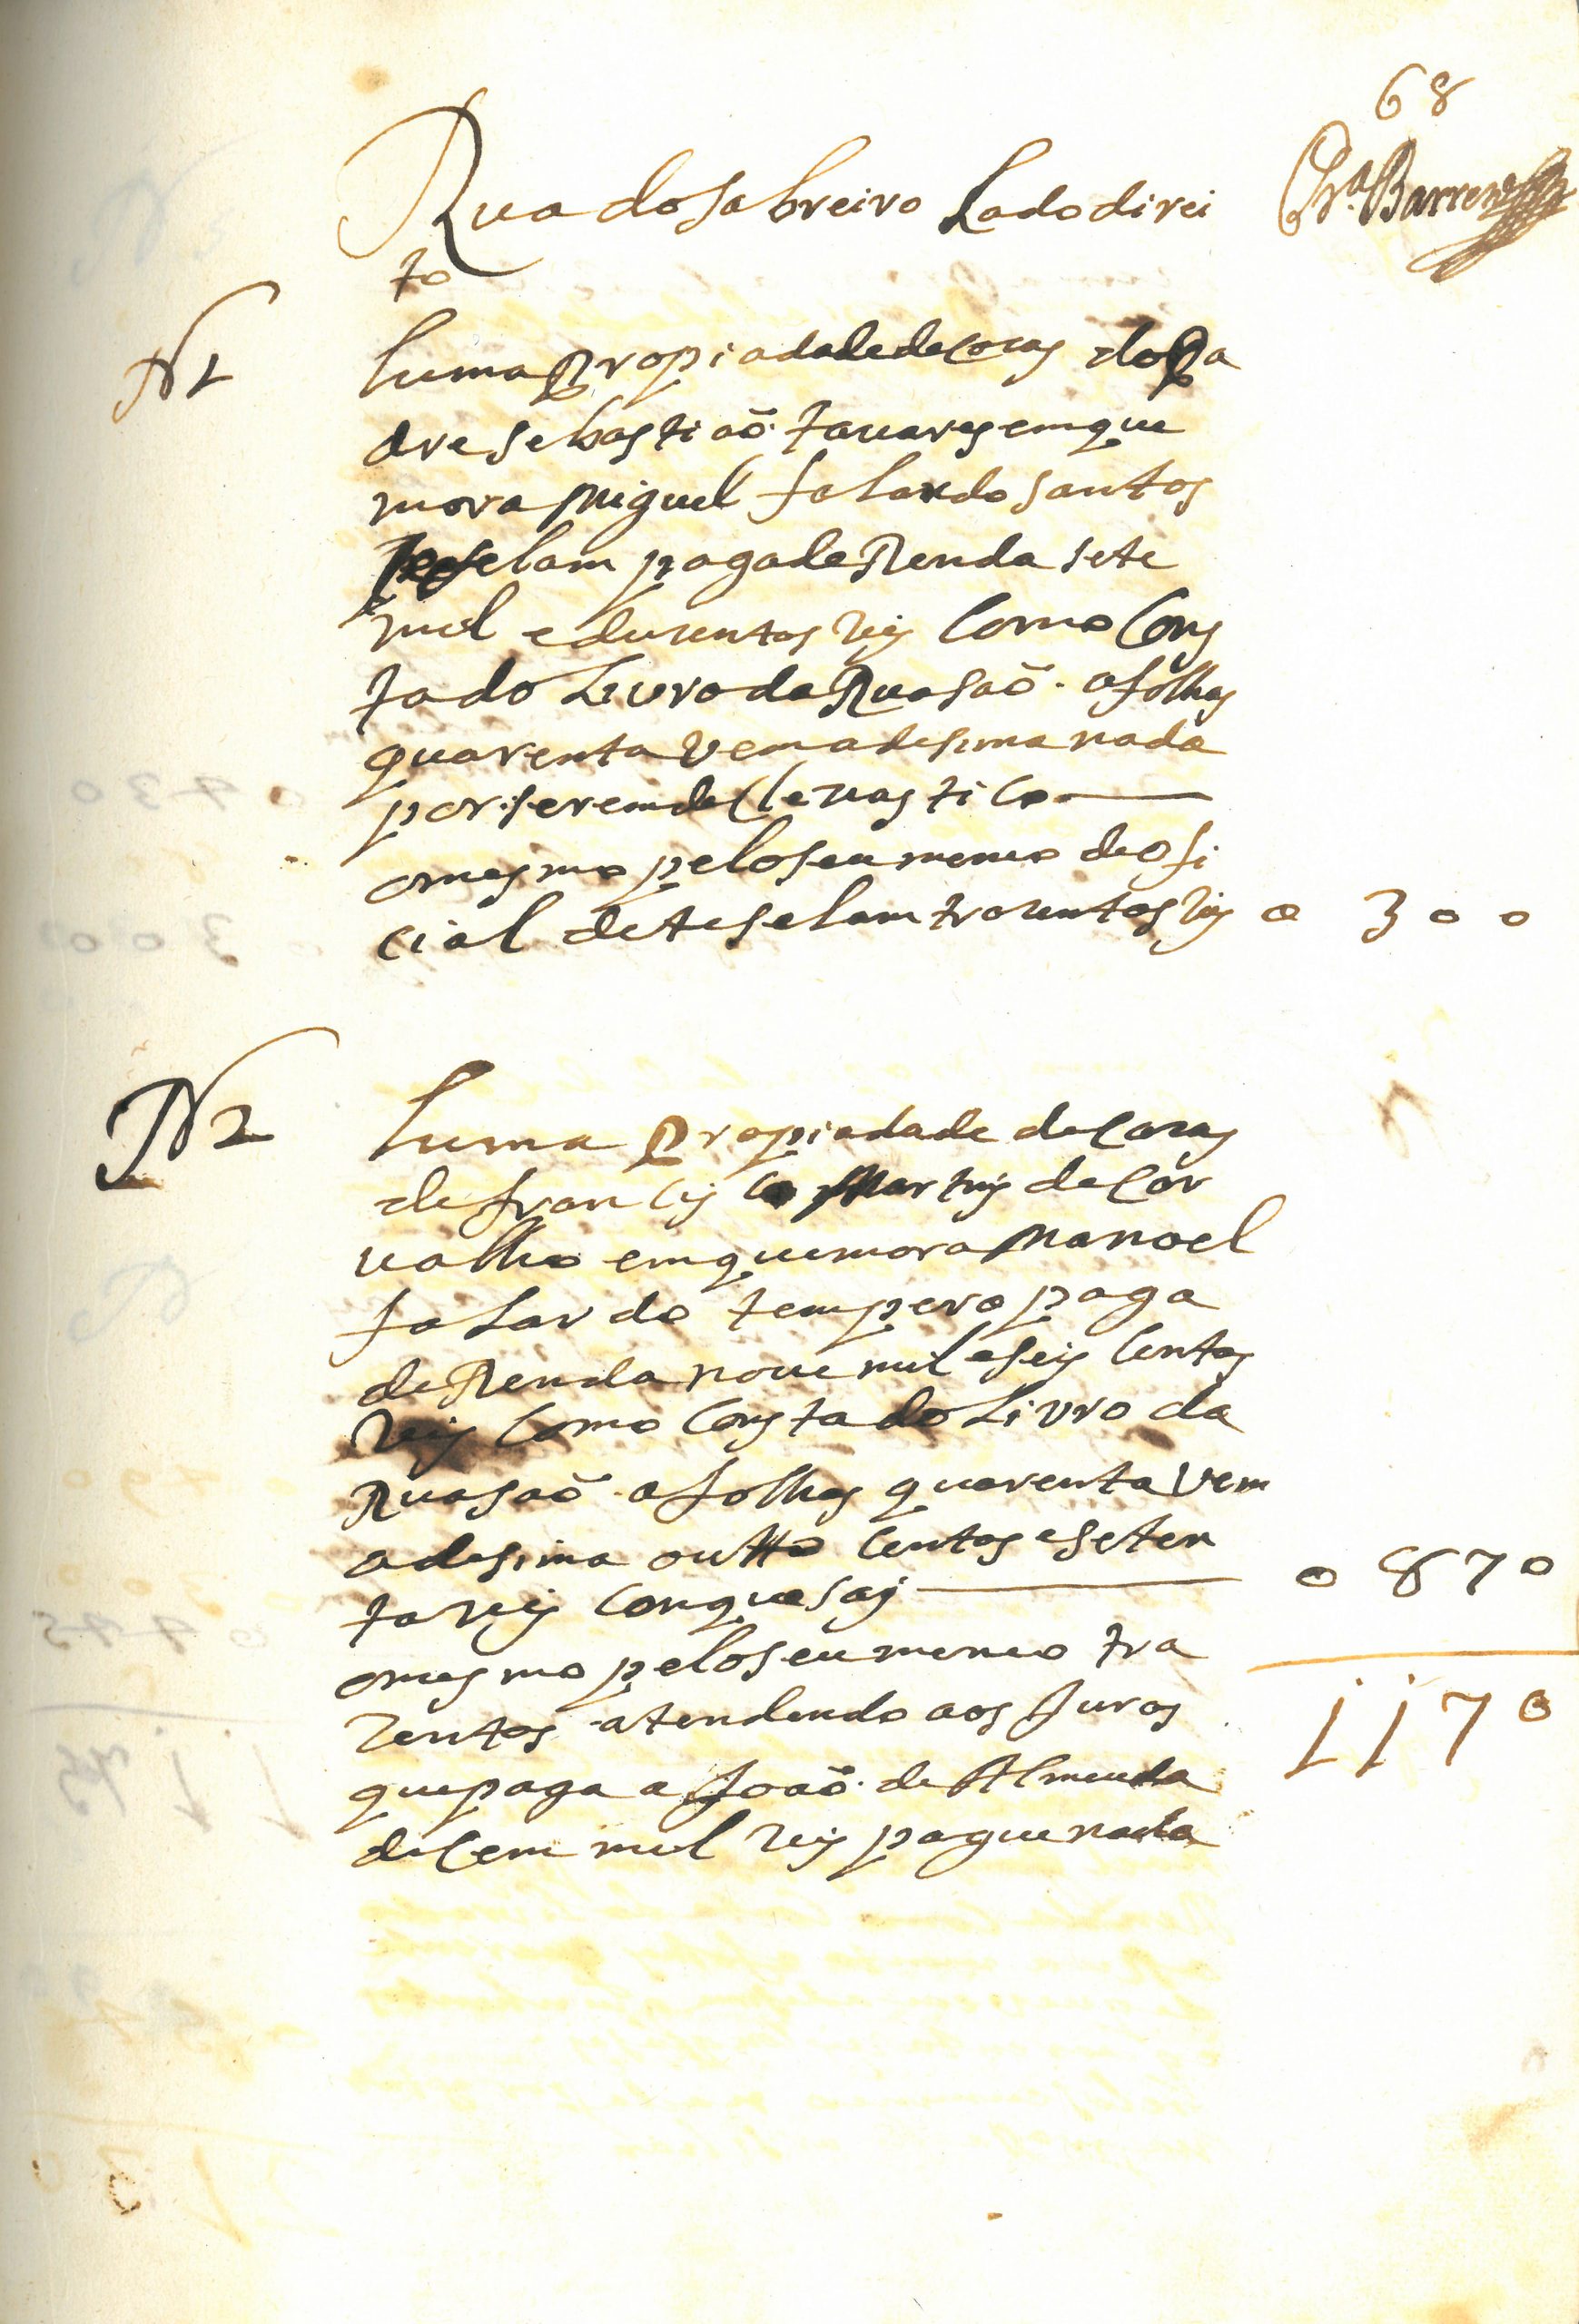 68
Rua do sabreiro Lado direi
to
N 1
huma Propiadade de Cazas do Pa
dre sebastiaõ tauares em que
mora Miguel falardo santos
teselam paga de Renda sete
mil e duzentos reis Como Cons
ta do Livro da Ruasaõ a folhas
quarenta vem a desima nada
por serem de Cleriastico
o mesmo pelo seu meneo de ofi
cial de teselam trozentos reis 0 300
N 2
huma Propiadade de Cazas
de francisco Martins de Car
valho em que mora Manoel
falardo tempero paga
de Renda noue mil e seis Centos
reis Como Consta do Livro da
Ruasaõ a folhas quarenta vem
a desima outto Centos e seten
ta reis Con que sai 0 870
o mesmo pelo seu meneo tra
zentos atendendo aos Juros 1170
que paga a Joaõ de Almeida
de Cem mil reis pague nada